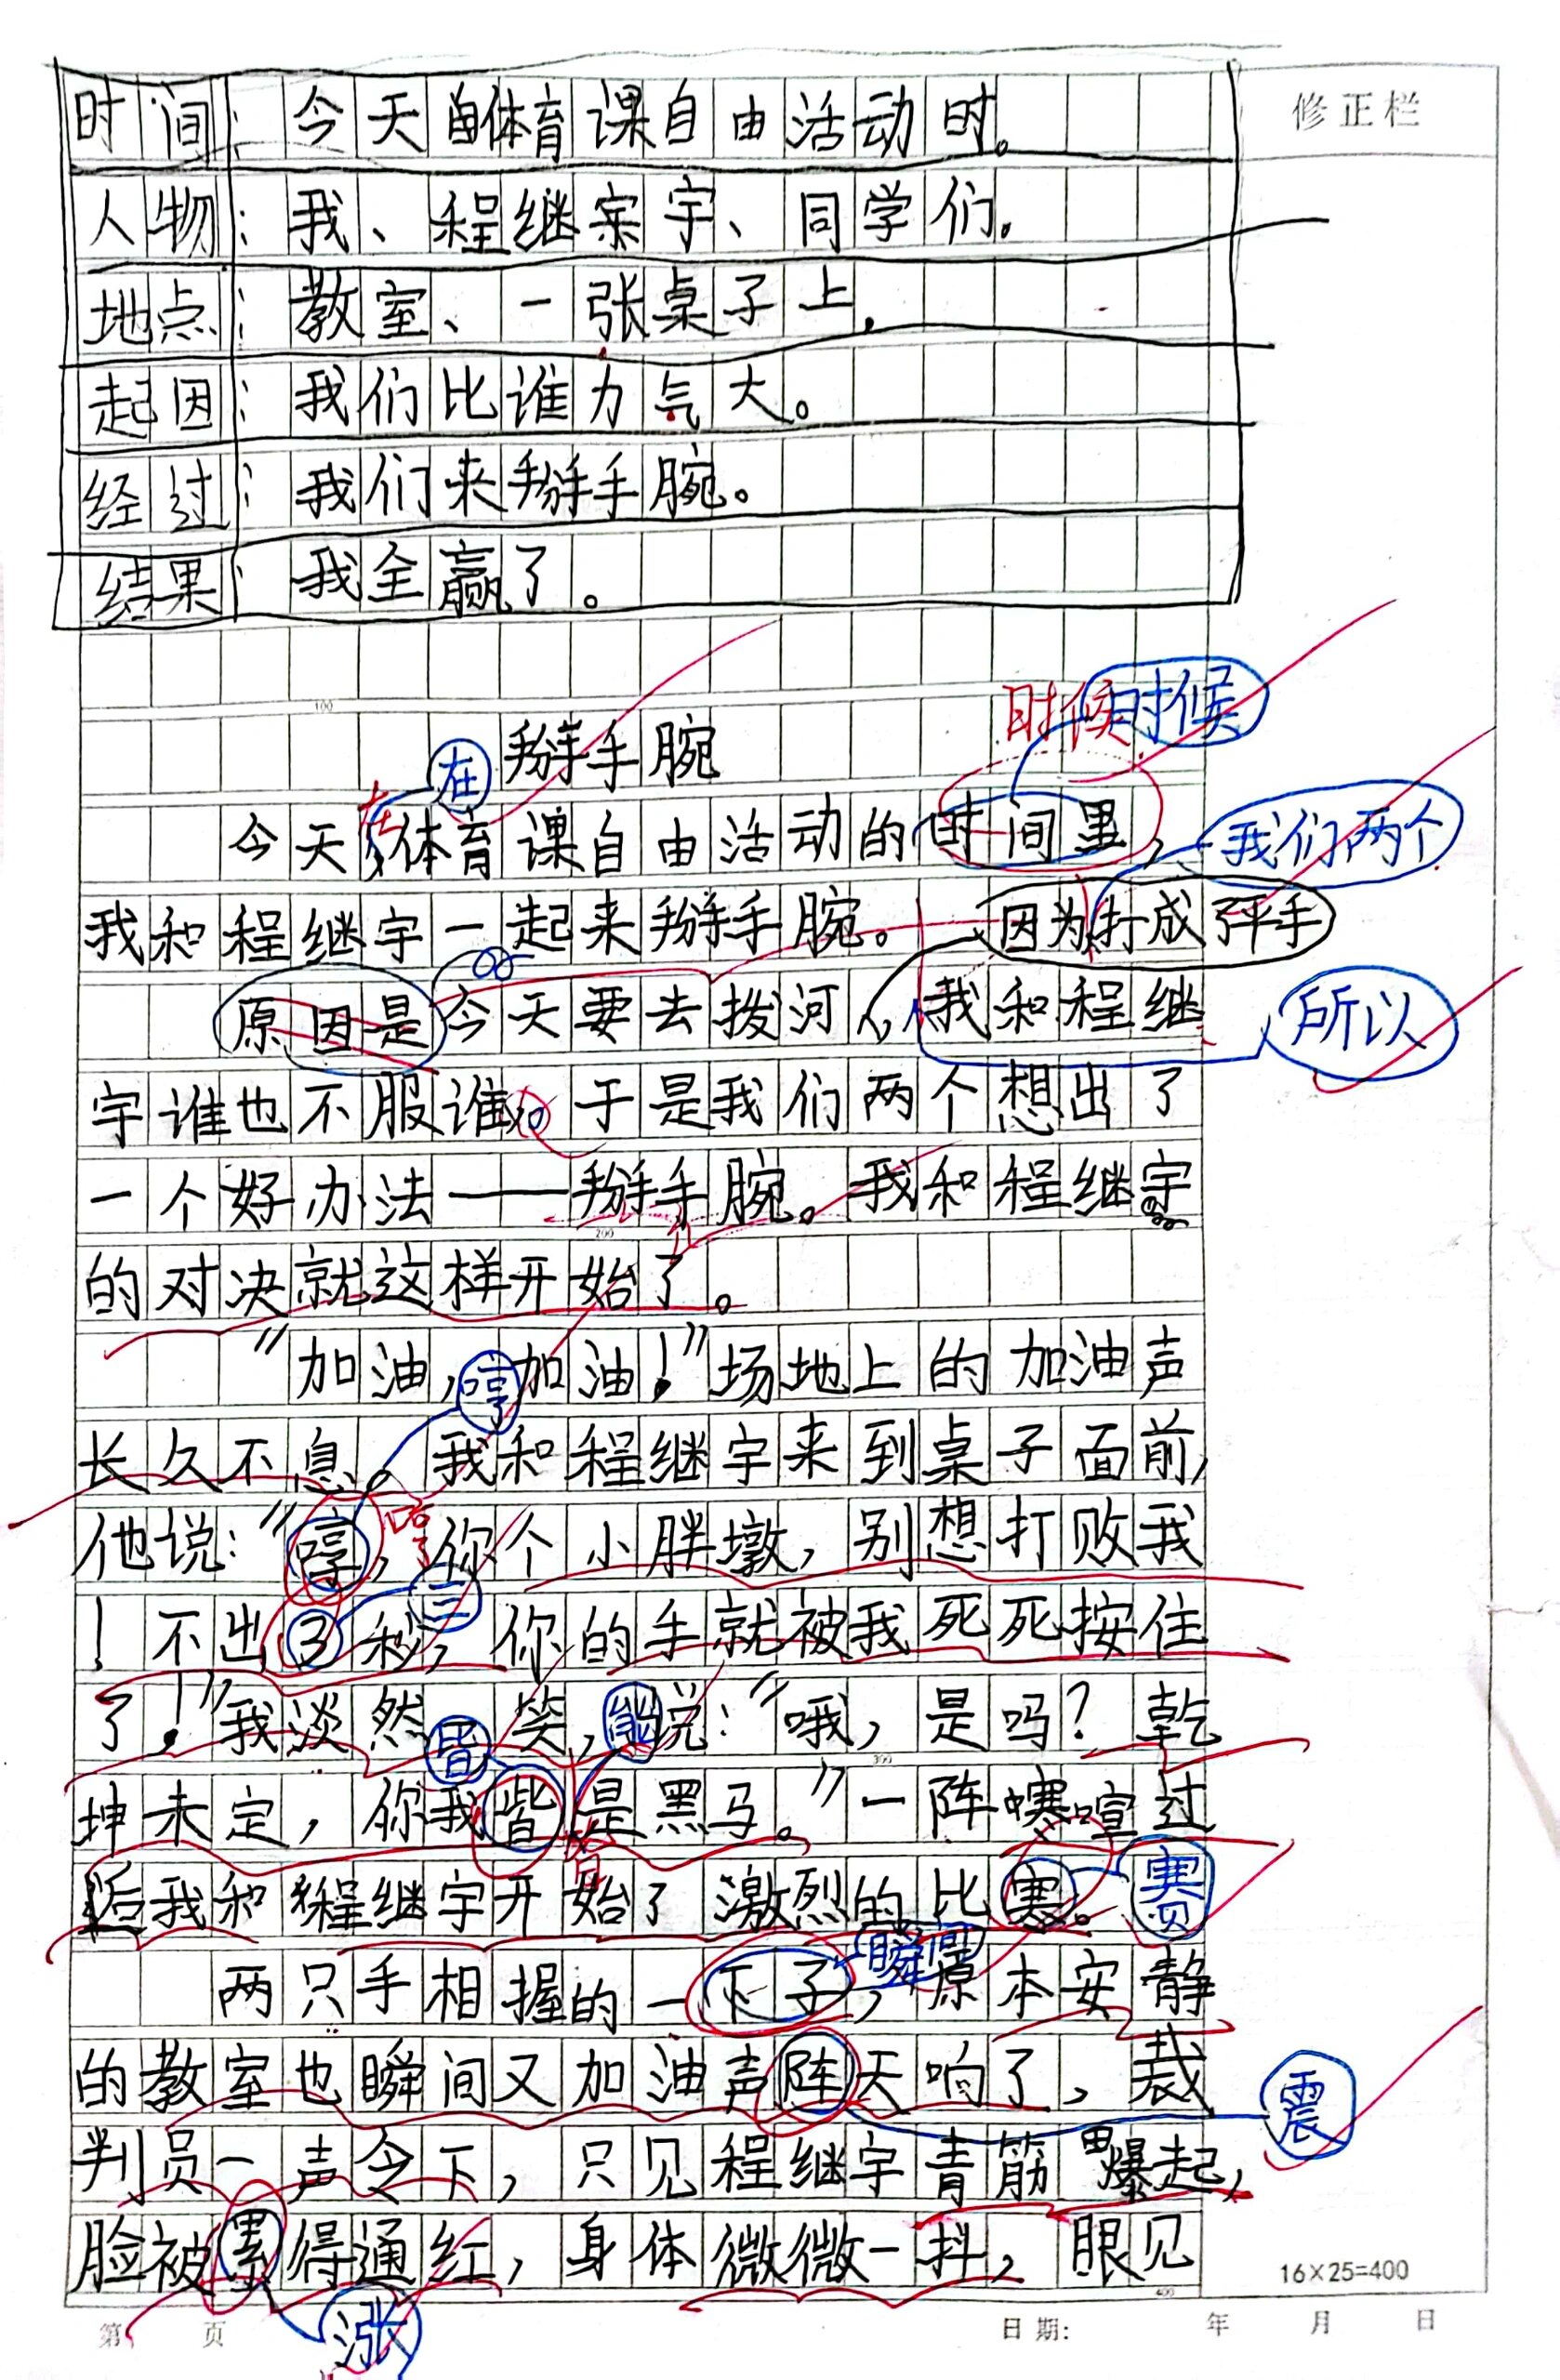 修正栏
时间：今天体育课自由活动时。
人物：我、程继宇、同学们。
地点：教室、一张桌子上.
起因：我们比谁力气大。
经过：我们来掰手腕。
结果：我全赢了。
100
时候 时候
在 掰手腕
在
今天体育课自由活动的时间里， 我们两个
我和程继宇一起来掰手腕。 因为打成了平手
原因是今天要去拨河，我和程继 所以
宇谁也不服谁。于是我们两个想出了
一个好办法——掰手腕。我和程继宇
200
的对决就这样开始了。
"加油，加油！"场地上的加油声
哼
长久不息。我和程继宇来到桌子面前，
他说："哼，你个小胖墩，别想打败我
哼
三
！不出3秒，你的手就被我死死按住
了！"我淡然一笑，说："哦，是吗？乾
皆 能
300
坤未定，你我皆是黑马。"一阵寒喧过
皆
后我和程继宇开始了激烈的比寒。 赛
瞬间
两只手相握的一下子，原本安静
的教室也瞬间又加油声阵天响了，裁
震
判员一声令下，只见程继宇青筋爆起，
脸被累得通红，身体微微一抖，眼见
涨
16×25=400
400
第 页 日期： 年 月 日